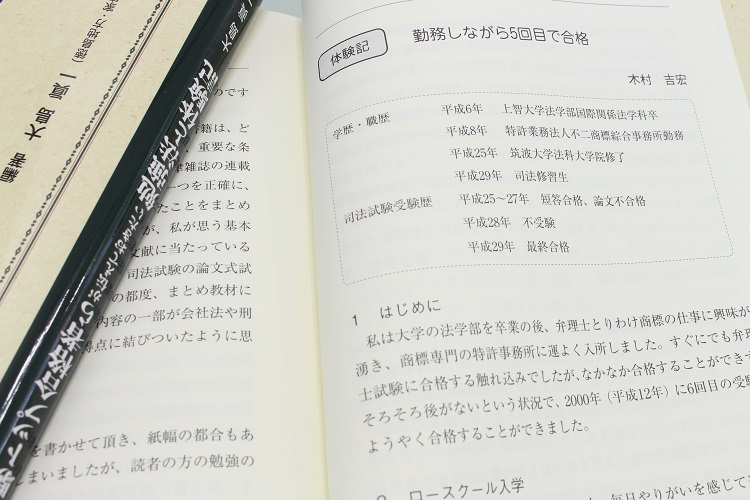 体験記
勤務しながら5回目で合格
木村 吉宏
学歴・職歴
平成6年 上智大学法学部国際関係法学科卒
平成8年 特許業務法人不二商標綜合事務所勤務
平成25年 筑波大学法科大学院修了
平成29年 司法修習生
司法試験受験歴
平成25〜27年 短答合格、論文不合格
平成28年 不受験
平成29年 最終合格
1 はじめに
私は大学の法学部を卒業の後、弁理士とりわけ商標の仕事に興味が
湧き、商標専門の特許事務所に運よく入所しました。すぐにでも弁理
士試験に合格する触れ込みでしたが、なかなか合格することができず
そろそろ後がないという状況で、2000年（平成12年）に6回目の受験
ようやく合格することができました。
ロースクール入学
毎日やりがいを感じて
のです
書籍は、ど
、重要な条
律雑誌の連載
一つを正確に、
たことをまとめ
が、私が思う基本
文献に当たっている
司法試験の論文式試
の都度、まとめ教材に
内容の一部が会社法や刑
得点に結びついたように思
を書かせて頂き、紙幅の都合もあ
しまいましたが、読者の方の勉強の
編著 大島 眞一
トップ合格者が伝えておきたい勉強法と体験記
大島 眞一